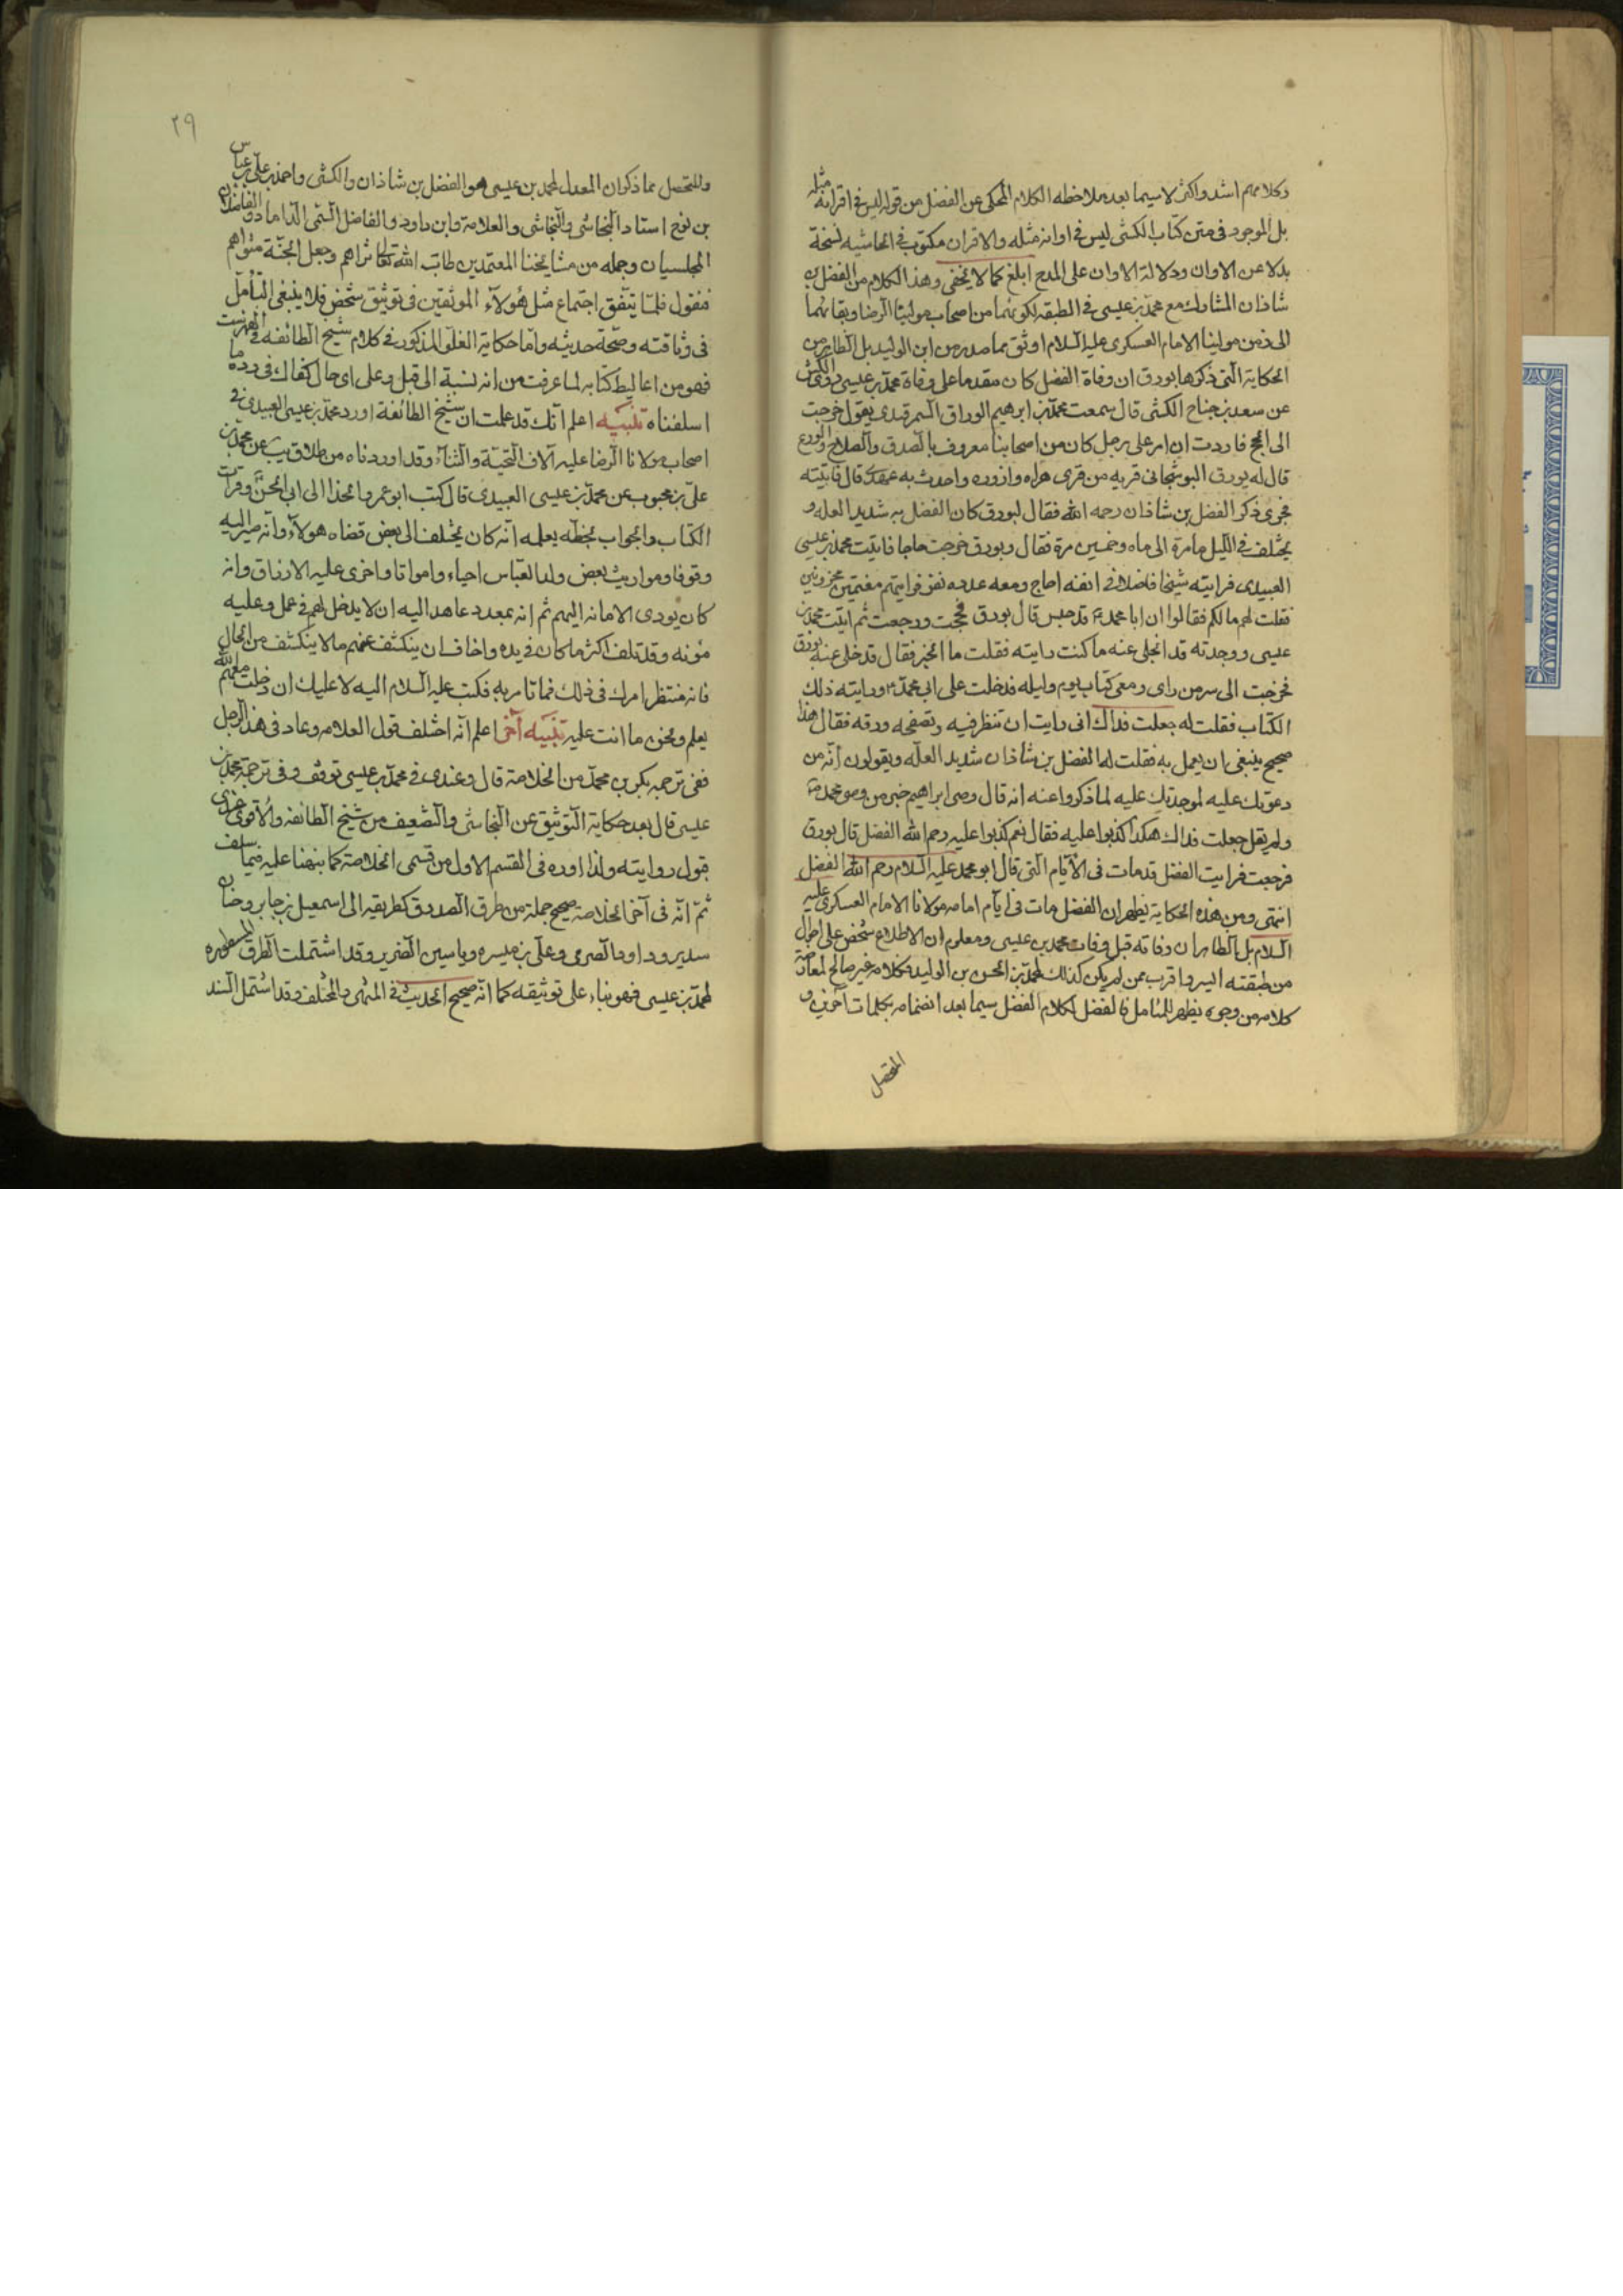 وكلامهم اشد واكثر لاسيما بعد ملاحظه الكلام المحكى عن الفضل من قوله ليس فى اقرانه مثله
بل الموجود فى متن كتاب الكشى ليس فى اوانه مثله والاقران مكتوب فى الحاشيه نسخة
بدلا عن الاوان ودلالة الاوان على المدح ابلغ كما لا يخفى وهذا الكلام من الفضل بن
شاذان المشارك مع محمد بن عيسى فى الطبقه لكونهما من اصحاب مولينا الرضا وبقائهما
الى زمن مولينا الامام العسكرى عليه السلام اوثق مما صدر من ابن الوليد بل الظاهر من
الحكاية التى ذكرها بورق ان وفاة الفضل كان مقدما على وفاة محمد بن عيسى روى الكشى
عن سعد بن جناح الكشى قال سمعت محمد بن ابرهيم الوراق السمرقندى يقول خرجت
الى الحج فاردت ان امر على رجل كان من اصحابنا معروف بالصدق والصلاح والورع
قال له بورق البوشنجانى قريه من قرى هراه وازوره واحدث به عهدى قال فاتيته
فجرى ذكر الفضل بن شاذان رحمه الله فقال بورق كان الفضل به شديد العله و
يختلف فى الليل مامرة الى ماه وخمسين مرة فقال بورق خرجت حاجا فاتيت محمد بن عيسى
العبيدى فرايته شيخا فاضلا فى انفه اعاج ومعه عده نفر فرايتهم مغتمين محزونين
فقلت لهم مالكم فقالوا ان ابا محمد ع قد حبس قال بورق فحججت ورجعت ثم اتيت محمد بن
عيسى ووجدته قد انجلى عنه ما كنت رايته فقلت ما الخبر فقال قد خلى عنه قال بورق
فخرجت الى سر من راى ومعى كتاب يوم وليله فدخلت على ابى محمد ع ورايته ذلك
الكتاب فقلت له جعلت فداك انى رايت ان تنظر فيه وتصفحه ورقه فقال هذا
صحيح ينبغى ان يعمل به فقلت له الفضل بن شاذان شديد العله ويقولون انه من
دعوتك عليه لموجدتك عليه لما ذكروا عنه انه قال وصى ابراهيم خير من وصى محمد ص
ولم يقل جعلت فداك هكذا كذبوا عليه فقال نعم كذبوا عليه رحم الله الفضل قال بورق
فرجعت فرايت الفضل قد مات فى الايام التى قال ابو محمد عليه السلام رحم الله الفضل
انتهى ومن هذه الحكاية يظهر ان الفضل مات فى ايام امامه مولانا الامام العسكرى عليه
السلام بل الظاهر ان وفاته قبل وفات محمد بن عيسى ومعلوم ان الاطلاع شخص على احوال
من طبقته ايسر واقرب ممن لم يكن كذلك لمحمد بن الحسن بن الوليد فكلامه غير صالح لمعارضة
كلامه من وجوه يظهر للمتامل فالفضل لكلام الفضل سيما بعد انضمامه بكلمات آخرين و
المتحصل
٢٩
وللتحصل مما ذكر ان المعدل لمحمد بن عيسى هو الفضل بن شاذان والكشى واحمد بن على بن عباس
بن نوح استاد النجاشى والنجاشى والعلامة وابن داود والفاضل السمى الداماد والفاضلان
المجلسيان وجمله من مشايخنا المعتمدين طاب الله تعالى ثراهم وجعل الجنة مثواهم
فنقول فلما يتفق اجتماع مثل هؤلاء الموثقين فى توثيق شخص فلا ينبغى التامل
فى وثاقته وصحة حديثه واما حكاية الغلو المذكور فى كلام شيخ الطائفه فى الفهرست
فهو من اغاليط كتابه لما عرفت من انه نسبة الى قيل وعلى اى حال كفاك فى رده ما
اسلفناه تنبيه اعلم انك قد علمت ان شيخ الطائفة اورد محمد بن عيسى العبيدى فى
اصحاب مولانا الرضا عليه آلاف التحية والثناء وقد اوردناه من طلاق يب عن محمد بن
على بن محبوب عن محمد بن عيسى العبيدى قال كتب ابو عمرو الحذا الى ابى الحسن ع وقرات
الكتاب والجواب بخطه يعلمه انه كان يختلف الى بعض قضاه هولاء وانه صير اليه
وقوفا ومواريث بعض ولد العباس احياء وامواتا واجرى عليه الارزاق وانه
كان يودى الامانه اليهم ثم انه بعد د عاهد اليه ان لا يدخل لهم فى عمل وعليه
مؤنه وقد تلف اكثر ما كان فى يده واخاف ان ينكشف عنهم مالا ينكشف من الحال
فانه منتظر امرك فى ذلك فما تامر به فكتب عليه السلام اليه لا عليك ان دخلت معهم الله
يعلم ونحن ما انت عليه تنبيه آخر اعلم انه اختلف قول العلامه وعاد فى هذا الرجل
ففى ترجمه بكر بن محمد من الخلاصة قال وعندى فى محمد بن عيسى توقف وفى ترجمة محمد بن
عيسى قال بعد حكاية التوثيق عن النجاشى والتضعيف من شيخ الطائفه والاقوى عندى
قبول روايته ولذا اورده فى القسم الاول من قسمى الخلاصة كما نبهنا عليه فيما سلف
ثم انه فى آخر الخلاصة صحح جملة من طرق الصدوق كطريقه الى اسمعيل بن جابر وحنان
سدير وداود الصرمى وعلى بن ميسره وياسين الضرير وقد اشتملت الطرق المسطوره
لمحمد بن عيسى فهو بناء على توثيقه كما انه صحيح الحديث فى المنتهى والمختلف وقد اشتمل السند